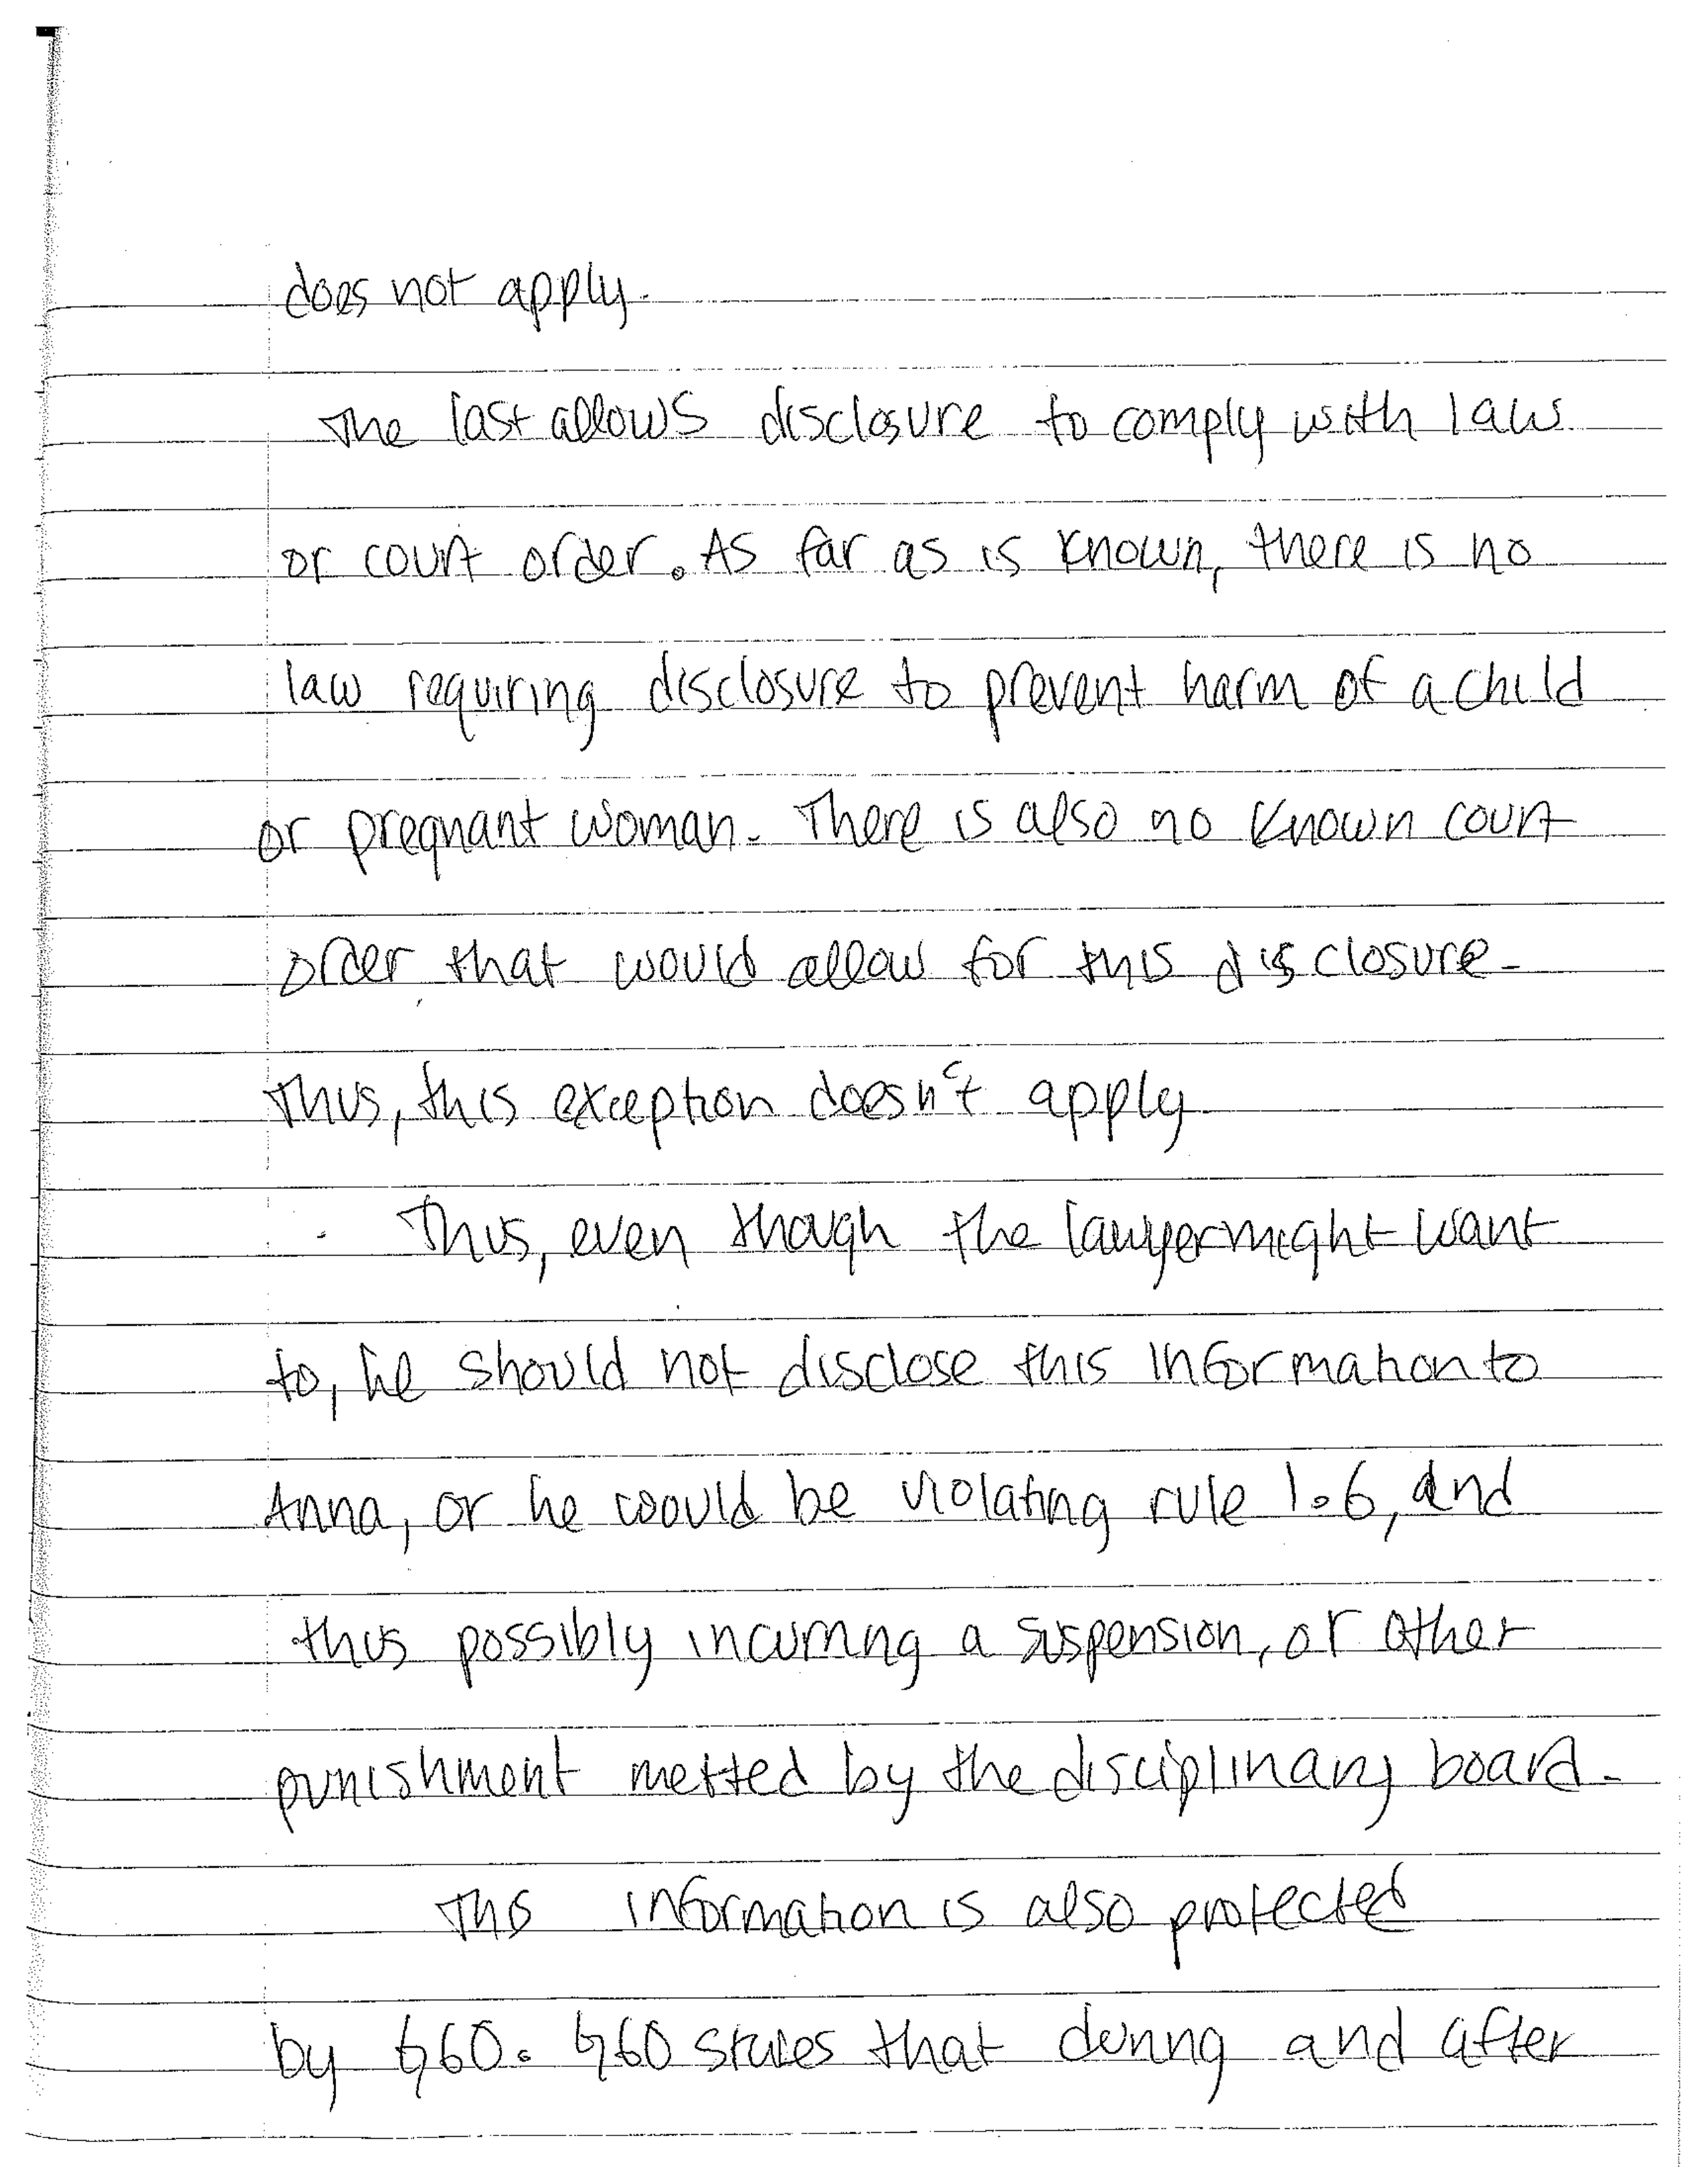 does not apply.
The last allows disclosure to comply with law
or court order. As far as is known, there is no
law requiring disclosure to prevent harm of a child
or pregnant woman. There is also no known court
order that would allow for this disclosure.
Thus, this exception doesn't apply.
Thus, even though the lawyer might want
to, he should not disclose this information to
Anna, or he would be violating rule 1.6, and
thus possibly incurring a suspension, or other
punishment metted by the disciplinary board.
This information is also protected
by §60. §60 states that during and after